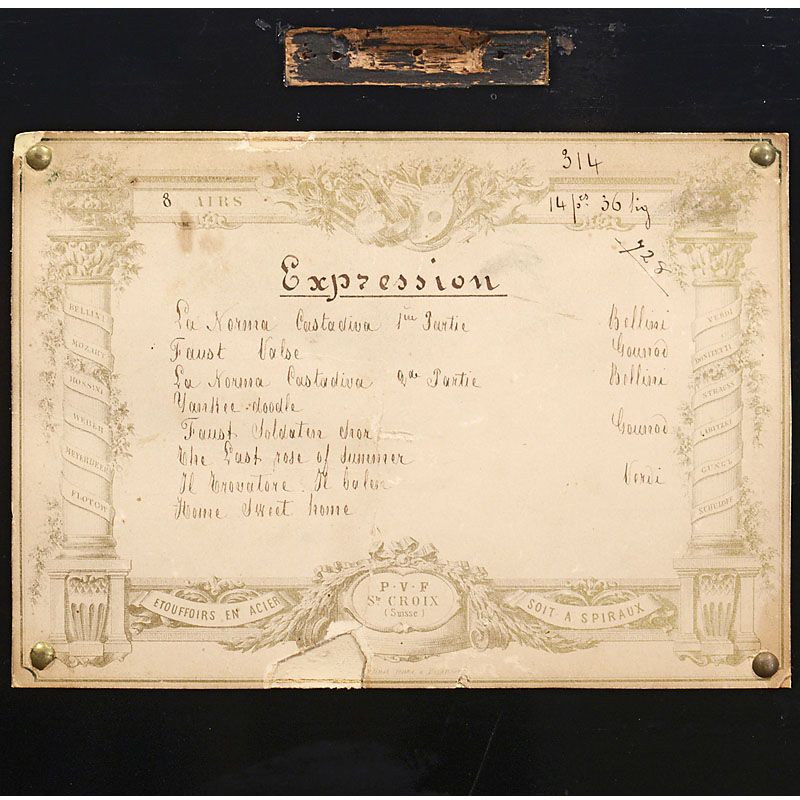 314
8 AIRS
14 ps 36 lig
728
Expression
La Norma Castadiva 1re Partie Bellini
Faust Valse Gounod
La Norma Castadiva 2de Partie Bellini
Yankee-doodle
Faust Soldaten chor Gounod
The Last rose of summer
Il Trovatore. Il balen Verdi
Home Sweet home
BELLINI
MOZART
ROSSINI
WEBER
MEYERBEER
FLOTOW
VERDI
DONIZETTI
STRAUSS
LABITZKI
GUNGL
ETOUFFOIRS EN ACIER
P·V·F
Ste CROIX
(Suisse)
SOIT A SPIRAUX